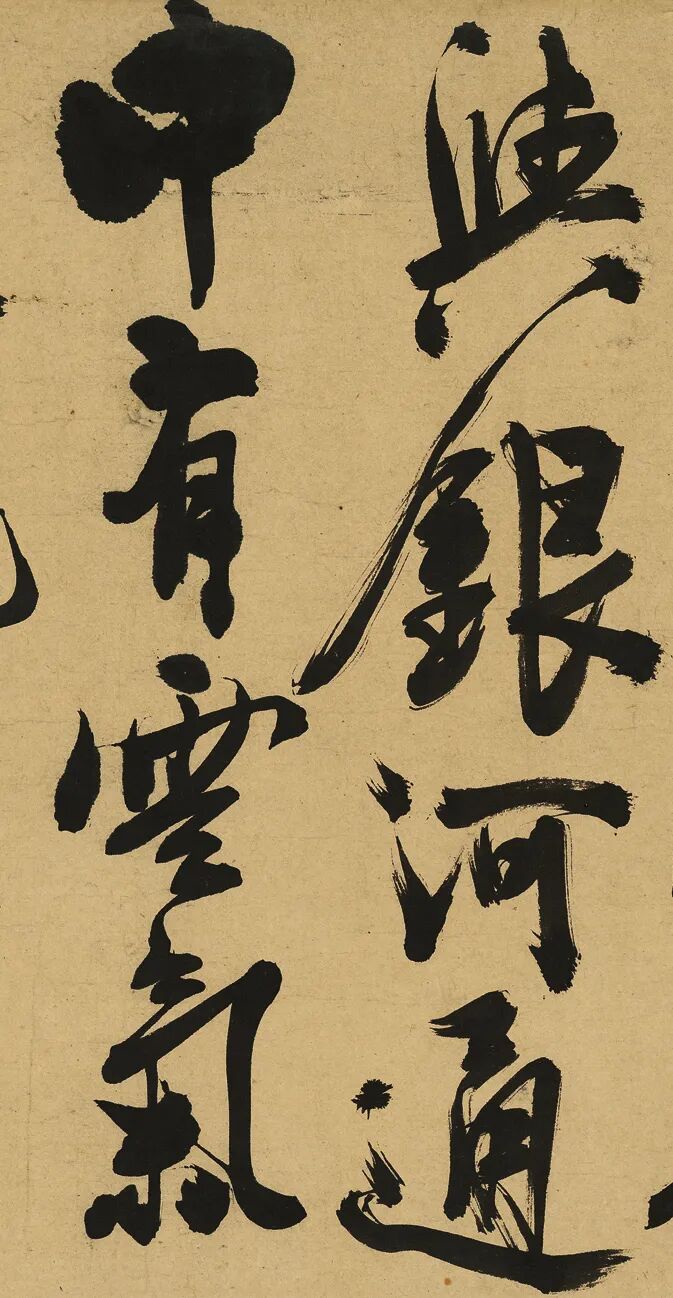 與銀河通
中有雲氣